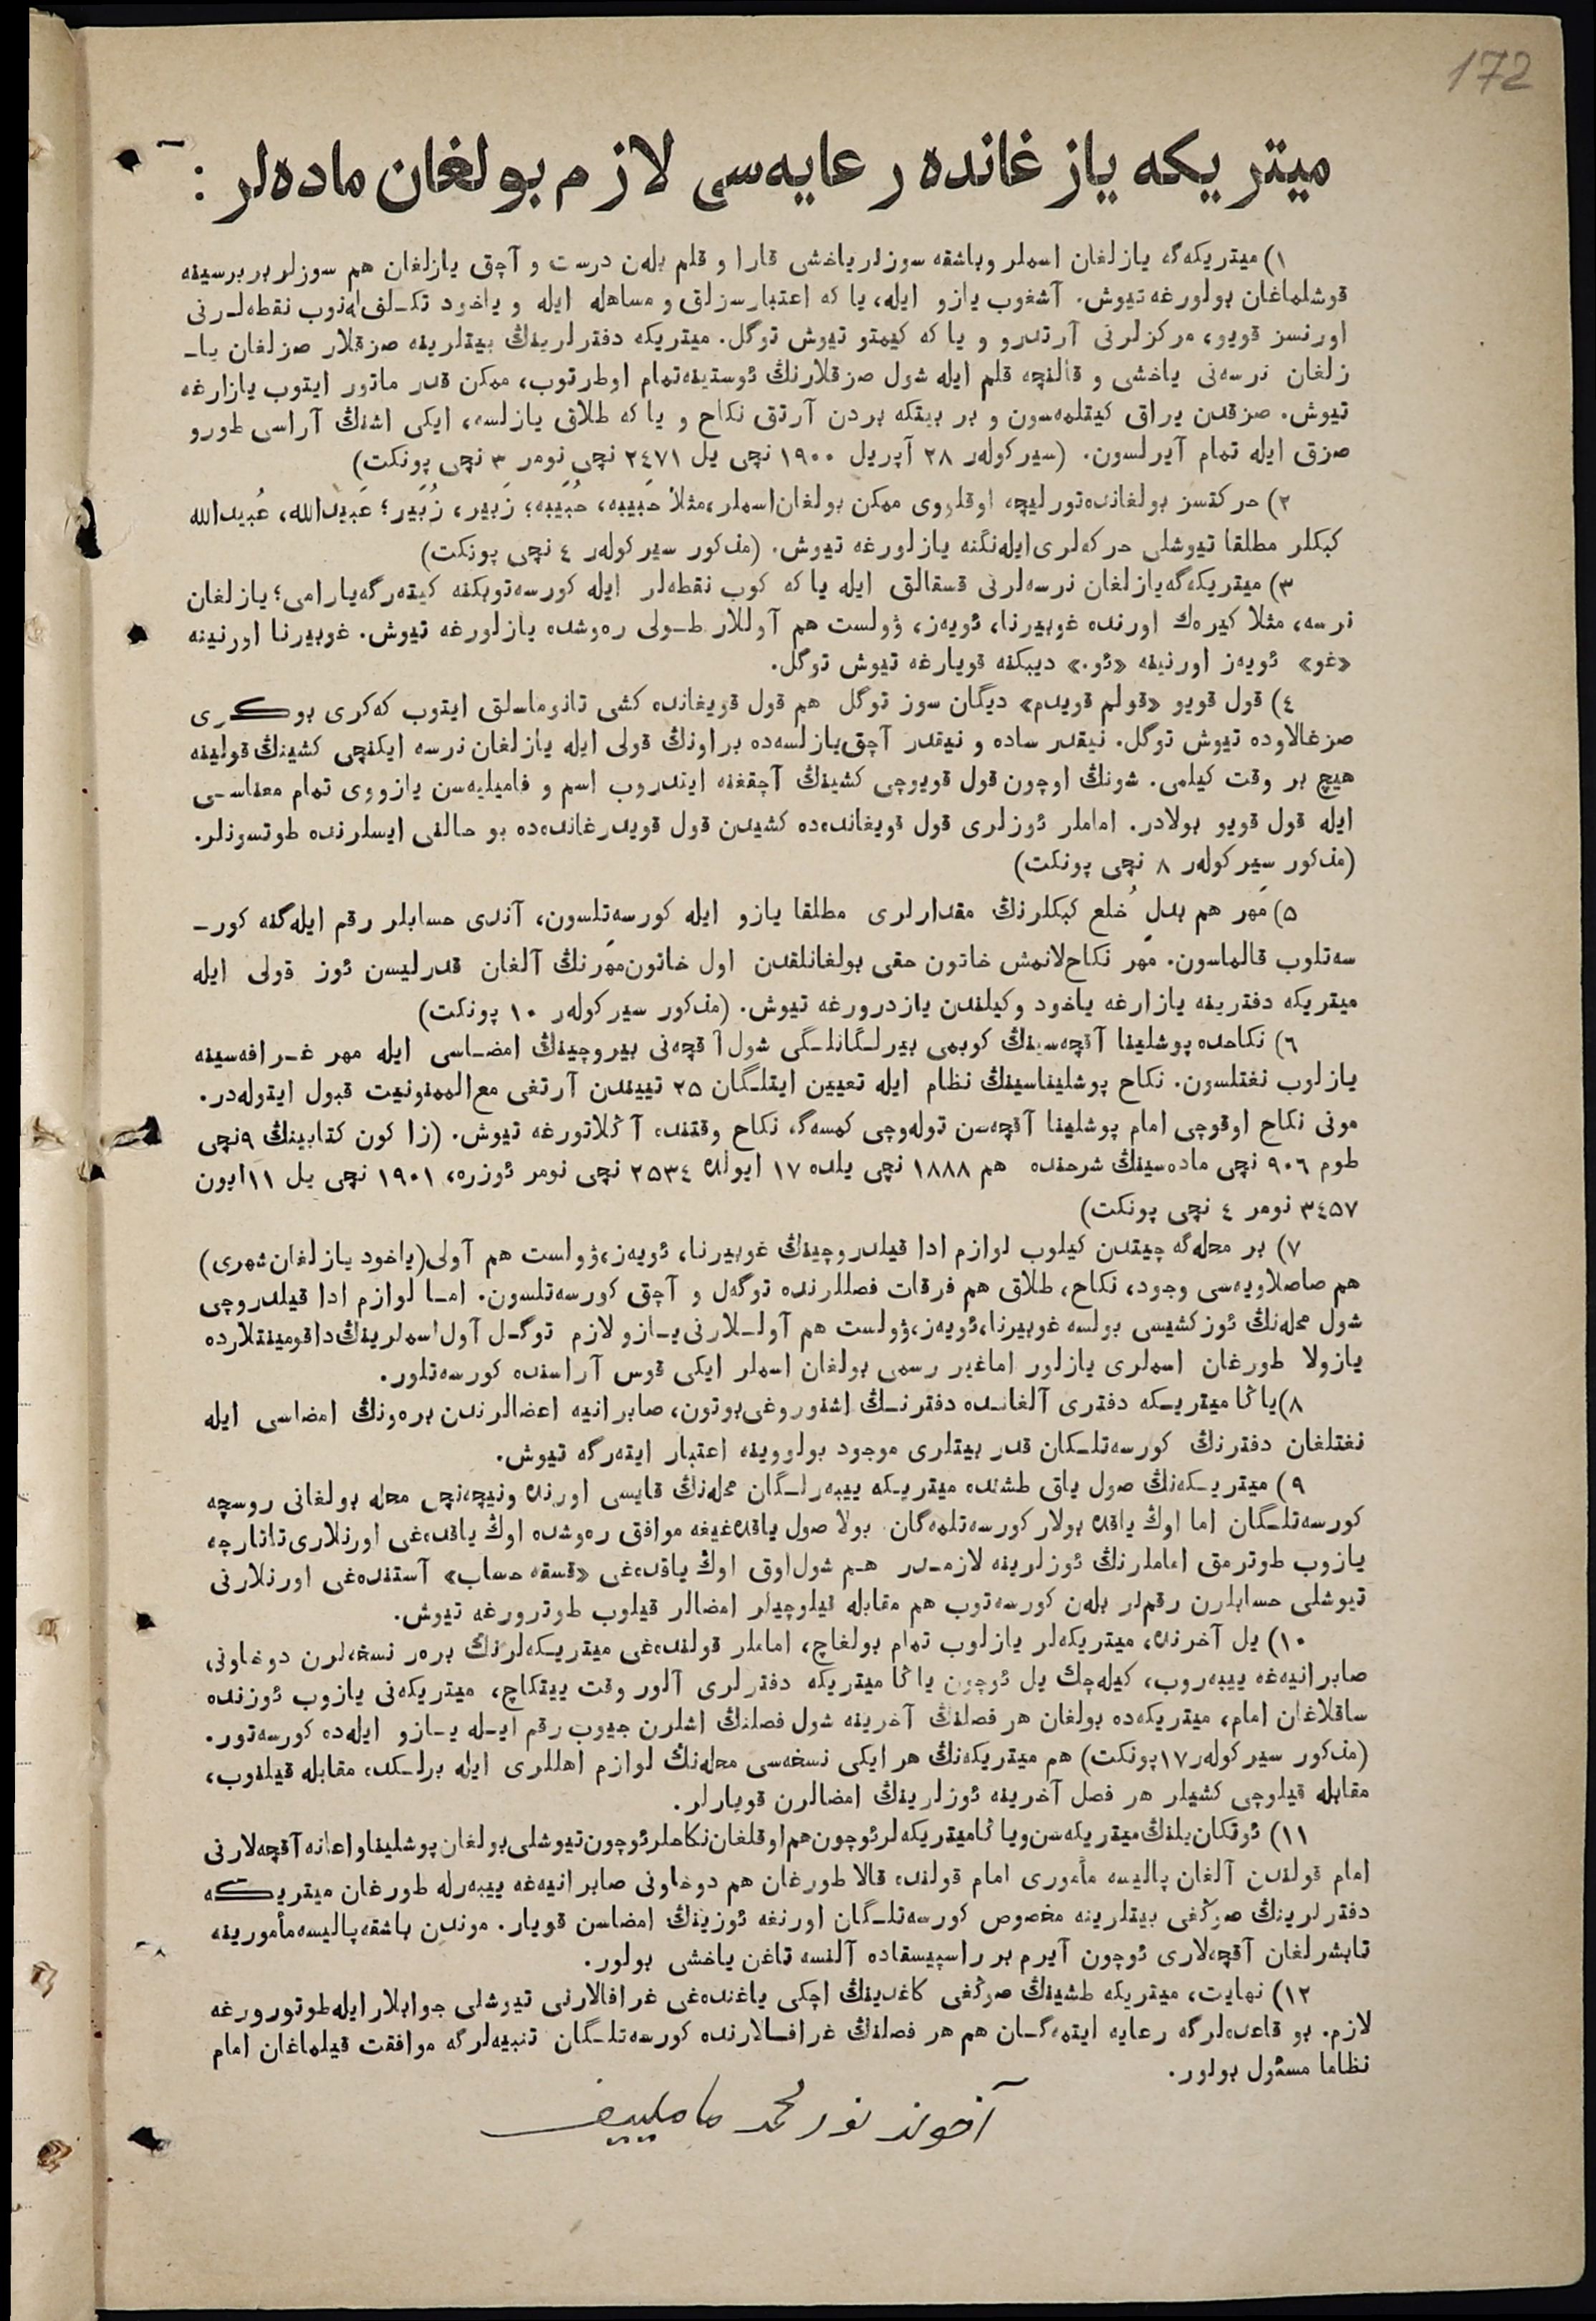 172
ميتريكه يازغانده رعايه‌سى لازم بولغان ماده‌لر :
١) ميتريكه‌گه يازلغان اسملر وباشقه سوزلر ياخشى قارا و قلم بله‌ن درست و آچق يازلغان هم سوزلر بربرسينه
قوشلماغان بولورغه تيوش. آشغوب يازو ايله، يا كه اعتبارسزلق و مساهله ايله و ياخود تكـلف له‌نوب نقطه‌لـرنى
اورنسز قويو، مركزلرنى آرتدرو و يا كه كيمتو تيوش توگل. ميتريكه دفترلرينڭ بيتلرينه صزقلار صزلغان يا-
زلغان نرسه‌نى ياخشى و قالنچه قلم ايله شول صزقلارنڭ ئوستينه تمام اوطرتوب، ممكن قدر ماتور ايتوب يازارغه
تيوش. صزقدن يراق كيتلمه‌سون و بر بيتكه بردن آرتق نكاح و يا كه طلاق يازلسه، ايكى اشنڭ آراسى طورو
صزق ايله تمام آيرلسون. (سيركوله‌ر ٢٨ آپريل ١٩٠٠ نچى يل ٢٤٧١ نچى نومر ٣ نچى پونكت)
٢) حركتسز بولغانده تورليچه اوقلووى ممكن بولغان اسملر، مثلا حَبيبه، حُبَيبه؛ زَبير، زُبَير؛ عَبيدالله، عُبيدالله
كبكلر مطلقا تيوشلى حركه‌لرى ايله‌نگنه يازلورغه تيوش. (مذكور سيركوله‌ر ٤ نچى پونكت)
٣) ميتريكه‌گه يازلغان نرسه‌لرنى قسقالق ايله يا كه كوب نقطه‌لر ايله كورسه‌توبكنه كيته‌رگه يارامى؛ يازلغان
نرسه، مثلا كيره‌ك اورنده غوبيرنا، ئويه‌ز، ۋولست هم آوللار طـولى ره‌وشده يازلورغه تيوش. غوبيرنا اورنينه
«غو» ئويه‌ز اورنينه «ئو.» ديبكنه قويارغه تيوش توگل.
٤) قول قويو «قولم قويدم» ديگان سوز توگل هم قول قويغانده كشى تانوماسلق ايتوب كه‌كرى بوكـرى
صزغالاوده تيوش توگل. نيقدر ساده و نيقدر آچق يازلسه‌ده براونڭ قولى ايله يازلغان نرسه ايكنچى كشينڭ قولينه
هيچ بر وقت كيلمى. شونڭ اوچون قول قويوچى كشينڭ آچقغنه ايتدروب اسم و فاميليه‌سن يازووى تمام معناسـى
ايله قول قويو بولادر. اماملر ئوزلرى قول قويغانده‌ده كشيدن قول قويدرغانده‌ده بو حالنى ايسلرنده طوتسونلر.
(مذكور سيركوله‌ر ٨ نچى پونكت)
٥) مَهر هم بدلِ خُلع كبكلرنڭ مقدارلرى مطلقا يازو ايله كورسه‌تلسون، آندى حسابلر رقم ايله‌گنه كور-
سه‌تلوب قالماسون. مَهر نكاح‌لانمش خاتون حقى بولغانلقدن اول خاتون مَهرنڭ آلغان قدرليسن ئوز قولى ايله
ميتريكه دفترينه يازارغه ياخود وكيلندن يازدرورغه تيوش. (مذكور سيركوله‌ر ١٠ پونكت)
٦) نكاحده پوشلينا آقچه‌سينڭ كوبمى بيرلـگانلـگى شول آقچه‌نى بيروچينڭ امضـاسى ايله مهر غـرافه‌سينه
يازلوب نغتلسون. نكاح پوشليناسينڭ نظام ايله تعيين ايتلـگان ٢٥ تييندن آرتغى مع‌الممنونيت قبول ايتوله‌در.
مونى نكاح اوقوچى امام پوشلينا آقچه‌سن توله‌وچى كمسه‌گه نكاح وقتنده آڭلاتورغه تيوش. (زاكون كتابينڭ ٩نچى
طوم ٩٠٦ نچى ماده‌سينڭ شرحنده هم ١٨٨٨ نچى يلده ١٧ ايولده ٢٥٣٤ نچى نومر ئوزره، ١٩٠١ نچى يل ١١ايون
٣٤٥٧ نومر ٤ نچى پونكت)
٧) بر محله‌گه چيتدن كيلوب لوازم ادا قيلدروچينڭ غوبيرنا، ئويه‌ز، ۋولست هم آولى (ياخود يازلغان شهرى)
هم صاصلاويه‌سى وجود، نكاح، طلاق هم فرقات فصللرنده توگه‌ل و آچق كورسه‌تلسون. امـا لوازم ادا قيلدروچى
شول محله‌نڭ ئوز كشيسى بولسه غوبيرنا، ئويه‌ز، ۋولست هم آولـلارنى يـازو لازم توگـل آول اسملرينڭ داقومينتلارده
يازولا طورغان اسملرى يازلور اماغير رسمى بولغان اسملر ايكى قوس آراسنده كورسه‌تلور.
٨) ياڭا ميتريـكه دفترى آلغانـده دفترنـڭ اشنوروغى بوتون، صابرانيه اعضالرندن بره‌ونڭ امضاسى ايله
نغتلغان دفترنڭ كورسه‌تلـكان قدر بيتلرى موجود بولووينه اعتبار ايته‌رگه تيوش.
٩) ميتريـكه‌نڭ صول ياق طشنده ميتريـكه ييبه‌رلـگان محله‌نڭ قايسى اورنده ونيچه‌نچى محله بولغانى روسچه
كورسه‌تلـگان اما اوڭ ياقده بولار كورسه‌تلمه‌گان. بولا صول ياقده‌غيغه موافق ره‌وشده اوڭ ياقده‌غى اورنلارى تاتارچه
يازوب طوترمق اماملرنڭ ئوزلرينه لازمـدر هـم شول‌اوق اوڭ ياقده‌غى «قسقه حساب» آستنده‌غى اورنلارنى
تيوشلى حسابلرن رقم‌لر بله‌ن كورسه‌توب هم مقابله قيلوچيلر امضالر قيلوب طوترورغه تيوش.
١٠) يل آخرنده، ميتريكه‌لر يازلوب تمام بولغاچ، اماملر قولنده‌غى ميتريـكه‌لرنڭ بره‌ر نسخه‌لرن دوخاونى
صابرانيه‌غه ييبه‌روب، كيله‌چك يل ئوچون ياڭا ميتريكه دفترلرى آلور وقت ييتكاچ، ميتريكه‌نى يازوب ئوزنده
ساقلاغان امام، ميتريكه‌ده بولغان هر فصلنڭ آخرينه شول فصلنڭ اشلرن جيوب رقم ايـله يـازو ايله‌ده كورسه‌تور.
(مذكور سيركوله‌ر ١٧پونكت) هم ميتريكه‌نڭ هر ايكى نسخه‌سى محله‌نڭ لوازم اهللرى ايله برلـكده مقابله قيلنوب،
مقابله قيلوچى كشيلر هر فصل آخرينه ئوزلرينڭ امضالرن قويارلر.
١١) ئوتكان يلنڭ ميتريكه‌سن وياڭا ميتريكه‌لر ئوچون هم اوقلغان نكاحلر ئوچون تيوشلى بولغان پوشلينا و اعانه آقچه‌لارنى
امام قولندن آلغان پاليسه مأمورى امام قولنده قالا طورغان هم دوخاونى صابرانيه‌غه ييبه‌رله طورغان ميتريـكـه
دفترلرينڭ صوڭغى بيتلرينه مخصوص كورسه‌تلـگان اورنغه ئوزينڭ امضاسن قويار. موندن باشقه پاليسه مأمورينه
تابشرلغان آقچه‌لارى ئوچون آيرم بر راسپيسقاده آلنسه تاغن ياخشى بولور.
١٢) نهايت، ميتريكه طشينڭ صوڭغى كاغدينڭ اچكى ياغنده‌غى غرافالارنى تيوشلى جوابلار ايله طوتورورغه
لازم. بو قاعده‌لرگه رعايه ايتمه‌گـان هم هر فصلنڭ غرافـالارنده كورسه‌تلـگان تنبيه‌لرگه موافقت قيلماغان امام
نظاما مسئول بولور.
آخوند نورمحمد ماملييف